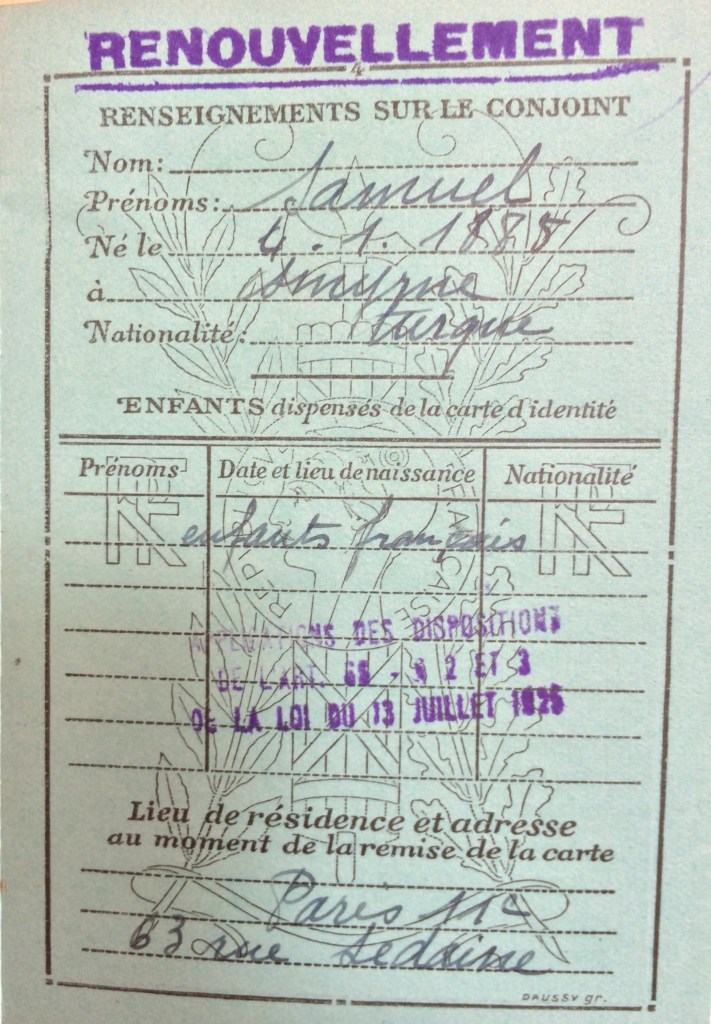 RENOUVELLEMENT
4
RENSEIGNEMENTS SUR LE CONJOINT
Nom:
Prénoms: Samuel
Né le 4.1.1888
à Smyrne
Nationalité: turque
ENFANTS dispensés de la carte d'identité
Prénoms Date et lieu de naissance Nationalité
RF RF
enfants français
RÉPUBLIQUE FRANÇAISE
DES DISPOSITIONS
DE L'ART. 65 - § 2 ET 3
DE LA LOI DU 13 JUILLET 1925
Lieu de résidence et adresse
au moment de la remise de la carte
Paris 11e
63 rue Sedaine
DAUSSY gr.